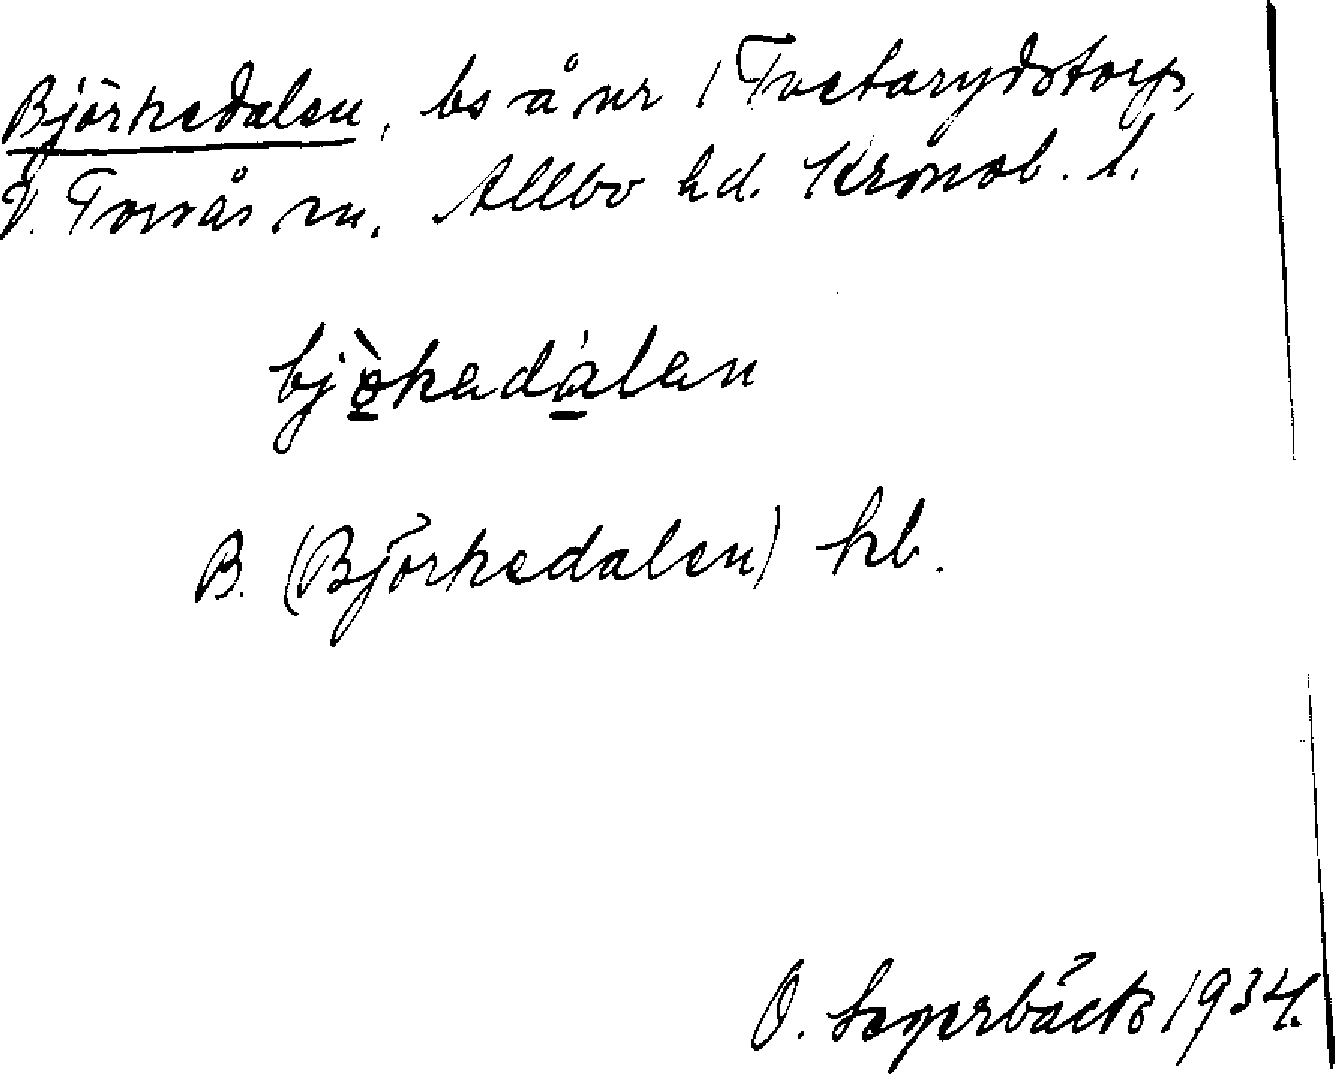 Björkedalen, bs å nr 1 Tvetarydstorp,
V. Torsås sn, Allbo hd. Kronob. l.
bjə̀kedálen
B. (Björkedalen) kb.
O. Lagerbäck 1934.